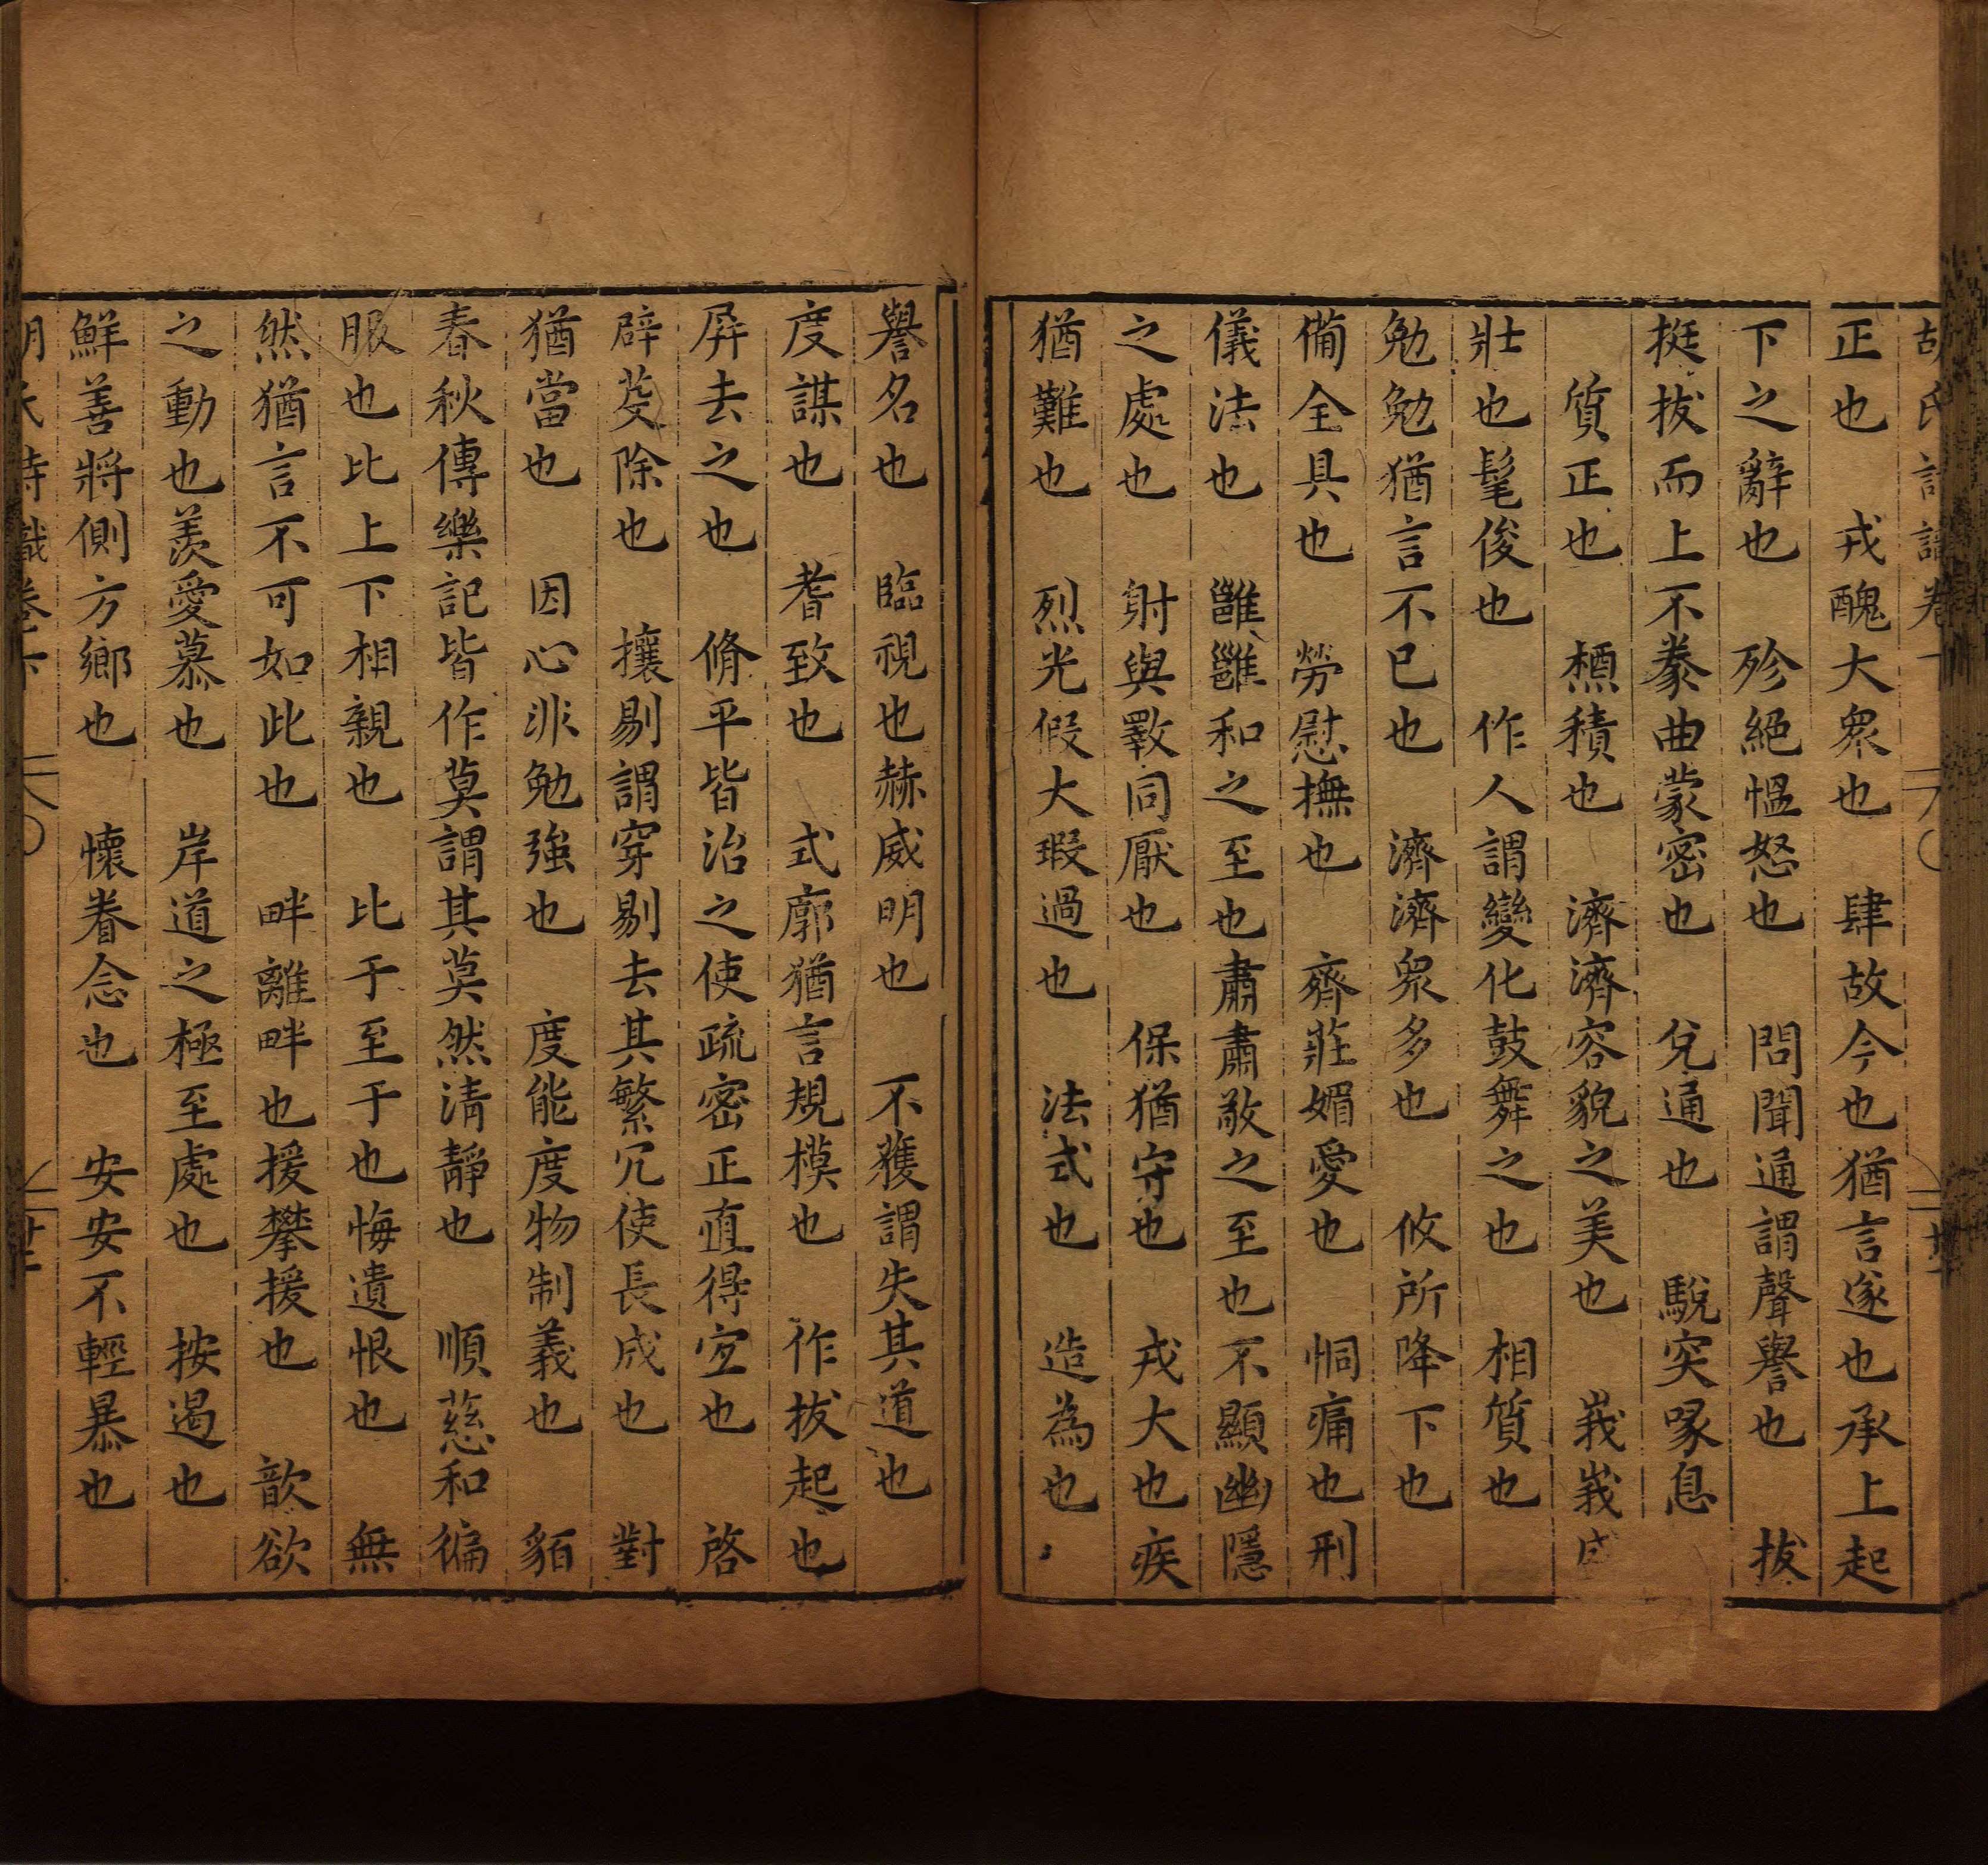 正也　戎醜大衆也　肆故今也猶言遂也承上起
下之辭也　殄絕愠怒也　問聞通謂聲譽也　拔
挺拔而上不豢曲蒙密也　兌通也　駾突喙息
質正也　槱積也　濟濟容貌之美也　峩峩
壯也髦俊也　作人謂變化鼓舞之也　相質也
勉勉猶言不已也　濟濟衆多也　攸所降下也
備全具也　勞慰撫也　齊莊媚愛也　恫痛也刑
儀法也　雝雝和之至也肅肅敬之至也不顯幽隱
之處也　射與斁同厭也　保猶守也　戎大也疾
猶難也　烈光假大瑕過也　法式也　造為也
譽名也　臨視也赫威明也　不獲謂失其道也
度謀也　耆致也　式廓猶言規模也　作拔起也
屏去之也　脩平皆治之使疏密正直得宜也　啓
辟芟除也　攘剔謂穿剔去其繁冗使長成也　對
猶當也　因心非勉強也　度能度物制義也　貊
春秋傳樂記皆作莫謂其莫然清靜也　順慈和徧
服也比上下相親也　比于至于也悔遺恨也　無
然猶言不可如此也　畔離畔也援攀援也　歆欲
之動也羨愛慕也　岸道之極至處也　按遏也
鮮善將側方鄉也　懷眷念也　安安不輕暴也